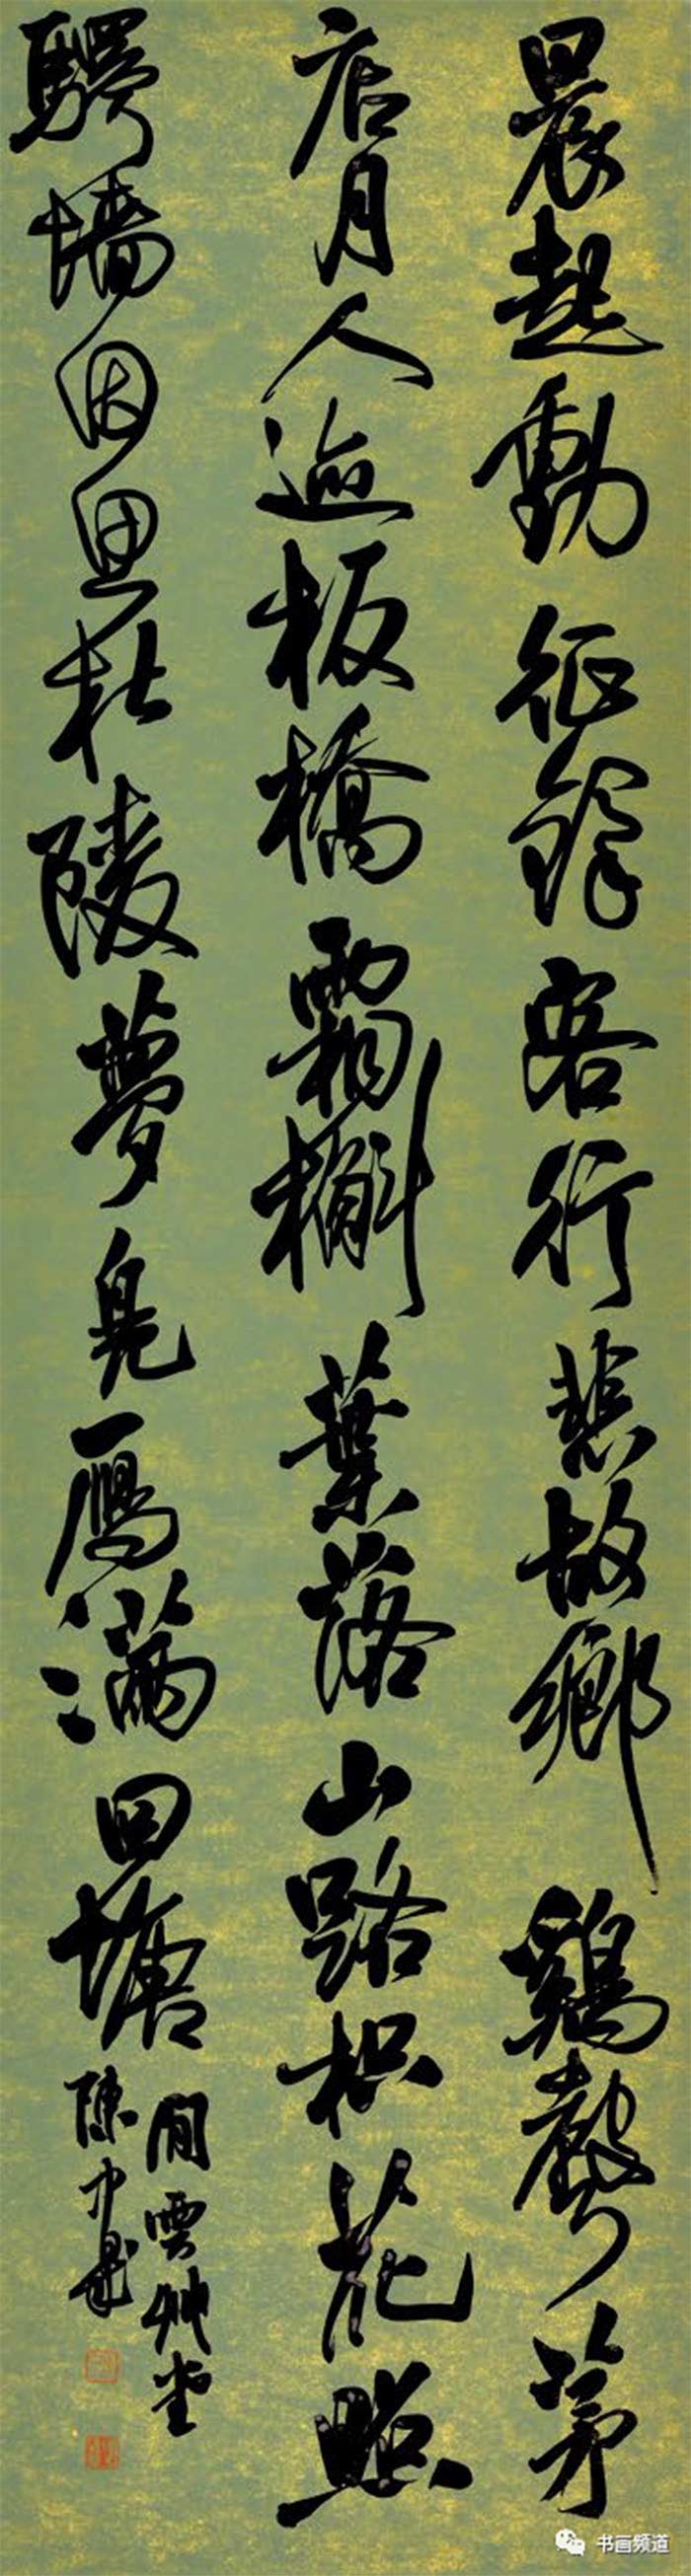 晨起動征鐸客行悲故鄉鷄聲茅
店月人迹板橋霜槲葉落山路枳花照
驛墻因思杜陵夢鳧鴈滿回塘
閒雲艸堂
陳
书画频道